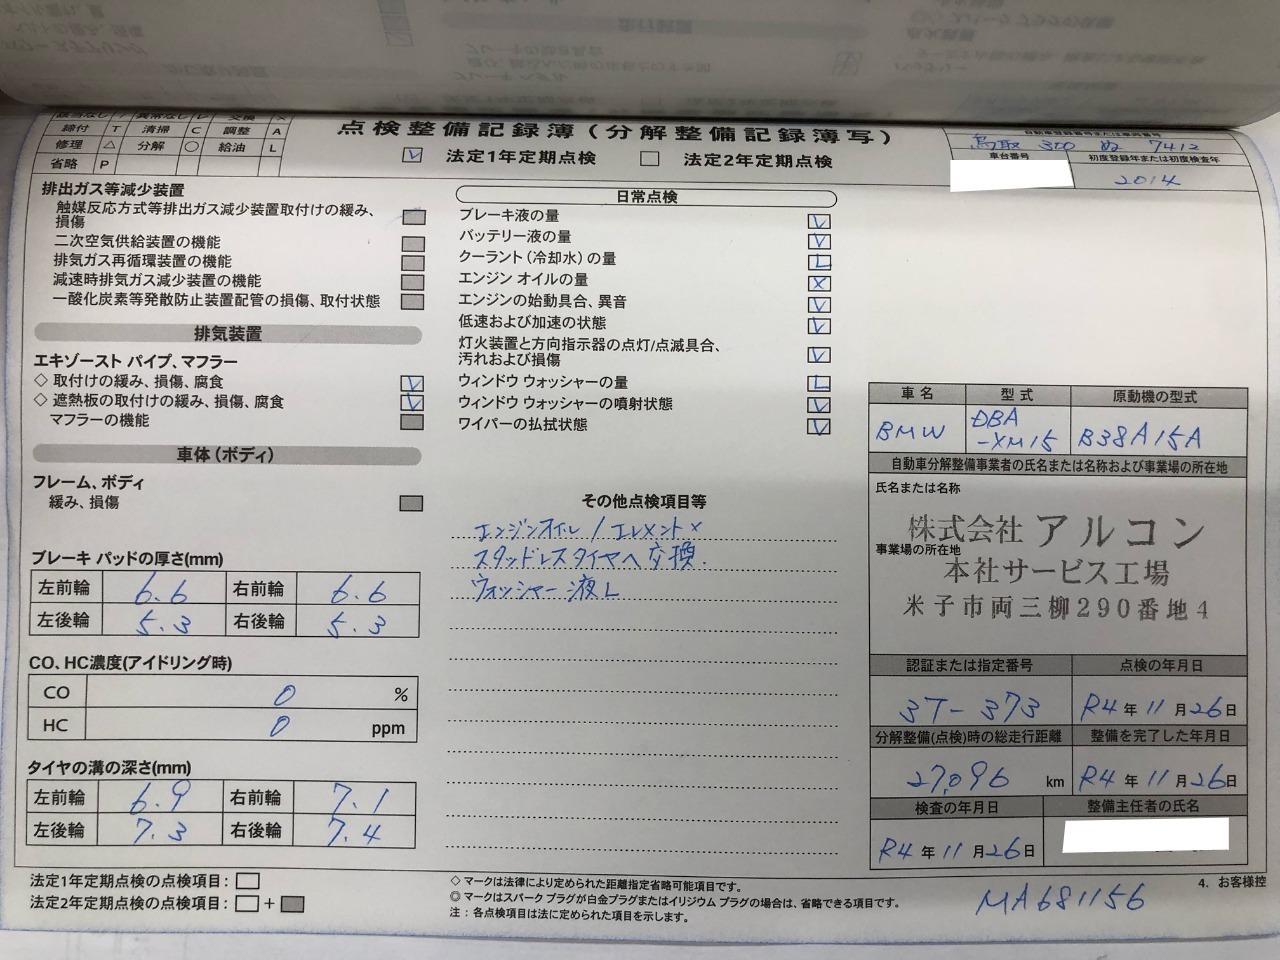 締付 T 清掃 C 調整 A
修理 △ 分解 ○ 給油 L
省略 P
点検整備記録簿(分解整備記録簿写)
V 法定1年定期点検 法定2年定期点検
自動車登録番号または車両番号
鳥取 300 ぬ 7412
車台番号 初度登録年または初度検査年
2014
排出ガス等減少装置
触媒反応方式等排出ガス減少装置取付けの緩み、
損傷
二次空気供給装置の機能
排気ガス再循環装置の機能
減速時排気ガス減少装置の機能
一酸化炭素等発散防止装置配管の損傷、取付状態
排気装置
エキゾースト パイプ、マフラー
◇ 取付けの緩み、損傷、腐食 V
◇ 遮熱板の取付けの緩み、損傷、腐食 V
マフラーの機能
車体(ボディ)
フレーム、ボディ
緩み、損傷
ブレーキ パッドの厚さ(mm)
左前輪 6.6 右前輪 6.6
左後輪 5.3 右後輪 5.3
CO、HC濃度(アイドリング時)
CO 0 %
HC 0 ppm
タイヤの溝の深さ(mm)
左前輪 6.9 右前輪 7.1
左後輪 7.3 右後輪 7.4
法定1年定期点検の点検項目:
法定2年定期点検の点検項目: +
日常点検
ブレーキ液の量 V
バッテリー液の量 V
クーラント(冷却水)の量 L
エンジン オイルの量 X
エンジンの始動具合、異音 V
低速および加速の状態 V
灯火装置と方向指示器の点灯/点滅具合、
汚れおよび損傷 V
ウィンドウ ウォッシャーの量 L
ウィンドウ ウォッシャーの噴射状態 V
ワイパーの払拭状態 V
その他点検項目等
エンジンオイル / エレメント×
スタッドレスタイヤへ交換.
ウォッシャー液L
◇ マークは法律により定められた距離指定省略可能項目です。
◎ マークはスパーク プラグが白金プラグまたはイリジウム プラグの場合は、省略できる項目です。
注: 各点検項目は法に定められた項目を示します。
車名 型式 原動機の型式
BMW DBA B38A15A
-XM15
自動車分解整備事業者の氏名または名称および事業場の所在地
氏名または名称
株式会社 アルコン
事業場の所在地
本社サービス工場
米子市両三柳290番地4
認証または指定番号 点検の年月日
3T-373 R4年11月26日
分解整備(点検)時の総走行距離 整備を完了した年月日
27,096 km R4年11月26日
検査の年月日 整備主任者の氏名
R4年11月26日
4. お客様控
MA681156